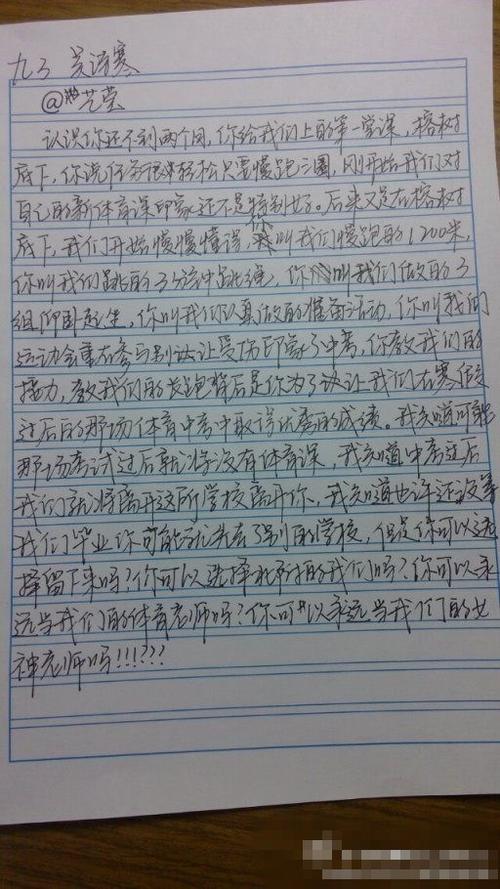 九3 吴泽寒
@ 艺莹
认识你还不到两个月,你给我们上的第一堂课,榕树
底下,你说任务很轻松只要慢跑三圈,刚开始我们对
自己的新体育课印象还不是特别好。后来又是在榕树
底下,我们开始慢慢懂得,你叫我们慢跑的1200米,
你叫我们跳的3分钟跳绳,你叫我们做的3
组仰卧起坐,你叫我们认真做的准备活动,你叫我们
运动会重在参与别让受伤影响了中考,你教我们的
接力,教我们的长跑背后是你为了让我们在寒假
过后的那场体育中考中取得优秀的成绩。我知道可能
那场考试过后就将没有体育课,我知道中考过后
我们就将离开这所学校离开你,我知道也许还没等
我们毕业你可能就先去了别的学校,但是你可以选
择留下来吗?你可以选择陪我们吗?你可以永
远当我们的体育老师吗?你可以永远当我们的女
神老师吗!!!???